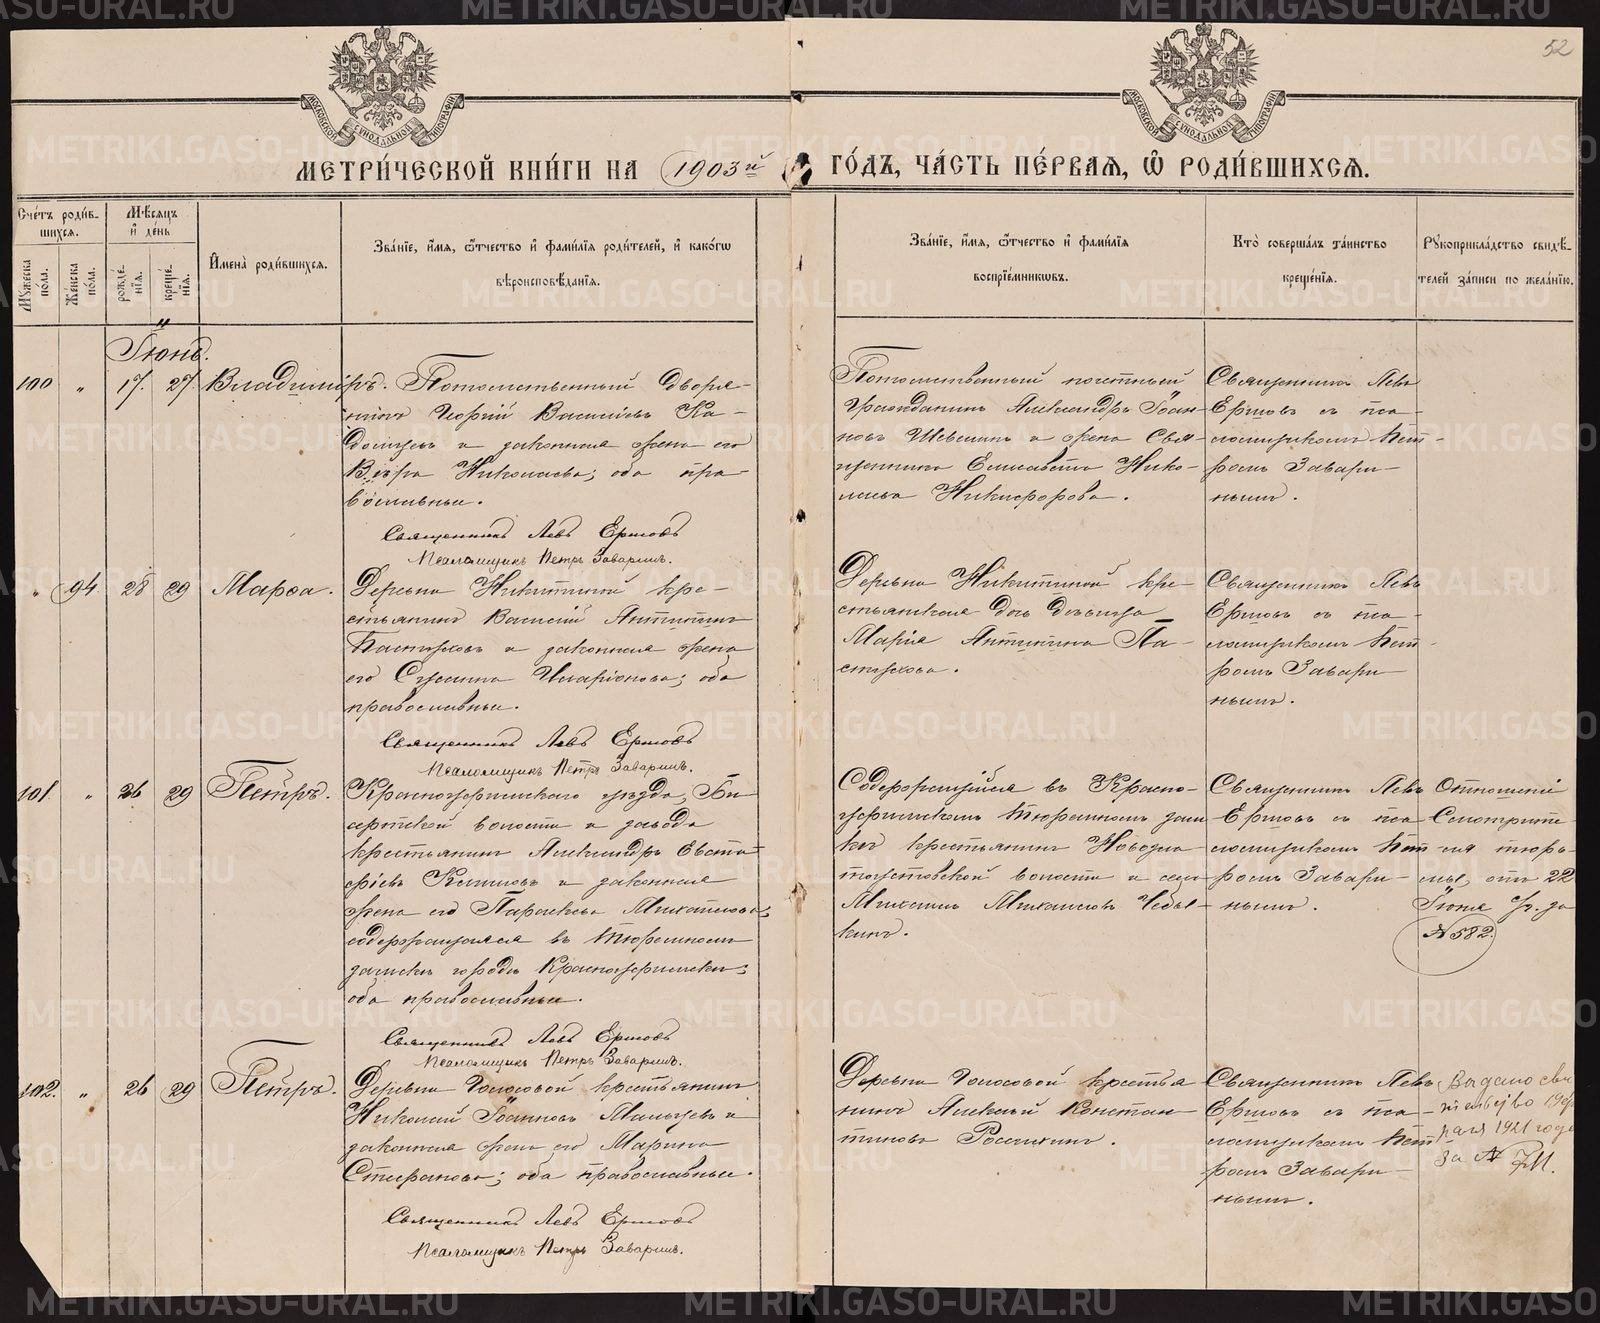 52
МОСКОВСКОЙ СѴНОДАЛЬНОЙ ТИПОГРАФІИ
МОСКОВСКОЙ СѴНОДАЛЬНОЙ ТИПОГРАФІИ
МЕТРИ́ЧЕСКОЙ КНИ́ГИ НА 1903й ГО́ДЪ, ЧА́СТЬ ПЕ́РВАѦ, Ѡ РОДИ́ВШИХСѦ.
Сче́тъ роди́в-
шихсѧ.
Мꙋ́жеска по́ла.
Же́нска по́ла.
Мѣ́сѧцъ
и҆ де́нь
рожде́нїѧ.
креще́нїѧ.
И҆мена̀ роди́вшихсѧ.
Зва́нїе, и҆́мѧ, ѻ҆́тчество и҆ фами́лїѧ роди́телей, и҆ како́гѡ
вѣроисповѣ́данїѧ.
Зва́нїе, и҆́мѧ, ѻ҆́тчество и҆ фами́лїѧ
воспрїе́мникѡвъ.
Кто̀ соверша́лъ та́инство
креще́нїѧ.
Рꙋкоприкла́дство свидѣ́-
телей за́писи по жела́нїю.
Іюнь.
100 " 17. 27. Владиміръ.
Потомственный дворя-
нинъ Георгій Васильевъ Ка-
и законная жена его
Вѣра Николаева; оба пра-
вославные.
Священникъ Левъ Ершовъ
Псаломщикъ Петръ Заваринъ.
Потомственный почетный
гражданинъ Александръ Іоан-
новъ Шевелинъ и жена Свя-
щенника Елисавета Нико-
лаева Никифорова.
Священникъ Левъ
Ершовъ съ пса-
ломщикомъ Пет-
ромъ Завари-
нымъ.
" 94 28 29 Марѳа.
Деревни Никитиной кре-
стьянинъ Василій Антипинъ
Пастуховъ и законная жена
его Сусанна Иларіонова; оба
православные.
Священникъ Левъ Ершовъ
Псаломщикъ Петръ Заваринъ.
Деревни Никитиной кре-
стьянская дочь дѣвица
Марія Антипина Па-
стухова.
Священникъ Левъ
Ершовъ съ пса-
ломщикомъ Пет-
ромъ Завари-
нымъ.
101. " 26 29 Петръ.
Красноуфимскаго уѣзда, Би-
сертской волости и завода
крестьянинъ Александръ Евста-
фіевъ и законная
жена его Параскева Михайлова;
содержащаяся въ тюремномъ
замкѣ города Красноуфимска;
оба православные.
Священникъ Левъ Ершовъ
Псаломщикъ Петръ Заваринъ.
Содержащійся въ Красно-
уфимскомъ тюремномъ зам-
кѣ крестьянинъ Новозла-
тоустовской волости и села
Михаилъ Михайловъ Чебы-
кинъ.
Священникъ Левъ
Ершовъ съ пса
ломщикомъ Пет-
ромъ Завари-
нымъ.
Отношеніе
Смотрите-
ля тюрь-
мы, отъ 22
Іюня с/г. за
№ 582.
102. " 26 29 Петръ.
Деревни Голосовой крестьянинъ
Николай Іоанновъ Мальцевъ и
законная жена его Марина
Стефанова; оба православные.
Священникъ Левъ Ершовъ
Псаломщикъ Петръ Заваринъ.
Деревни Голосовой крестья
нинъ Алексѣй Констан-
тиновъ Россихинъ.
Священникъ Левъ
Ершовъ съ пса-
ломщикомъ Пет
ромъ Завари-
нымъ.
Выдано сви
1921 года
за №
METRIKI.GASO-URAL.RU